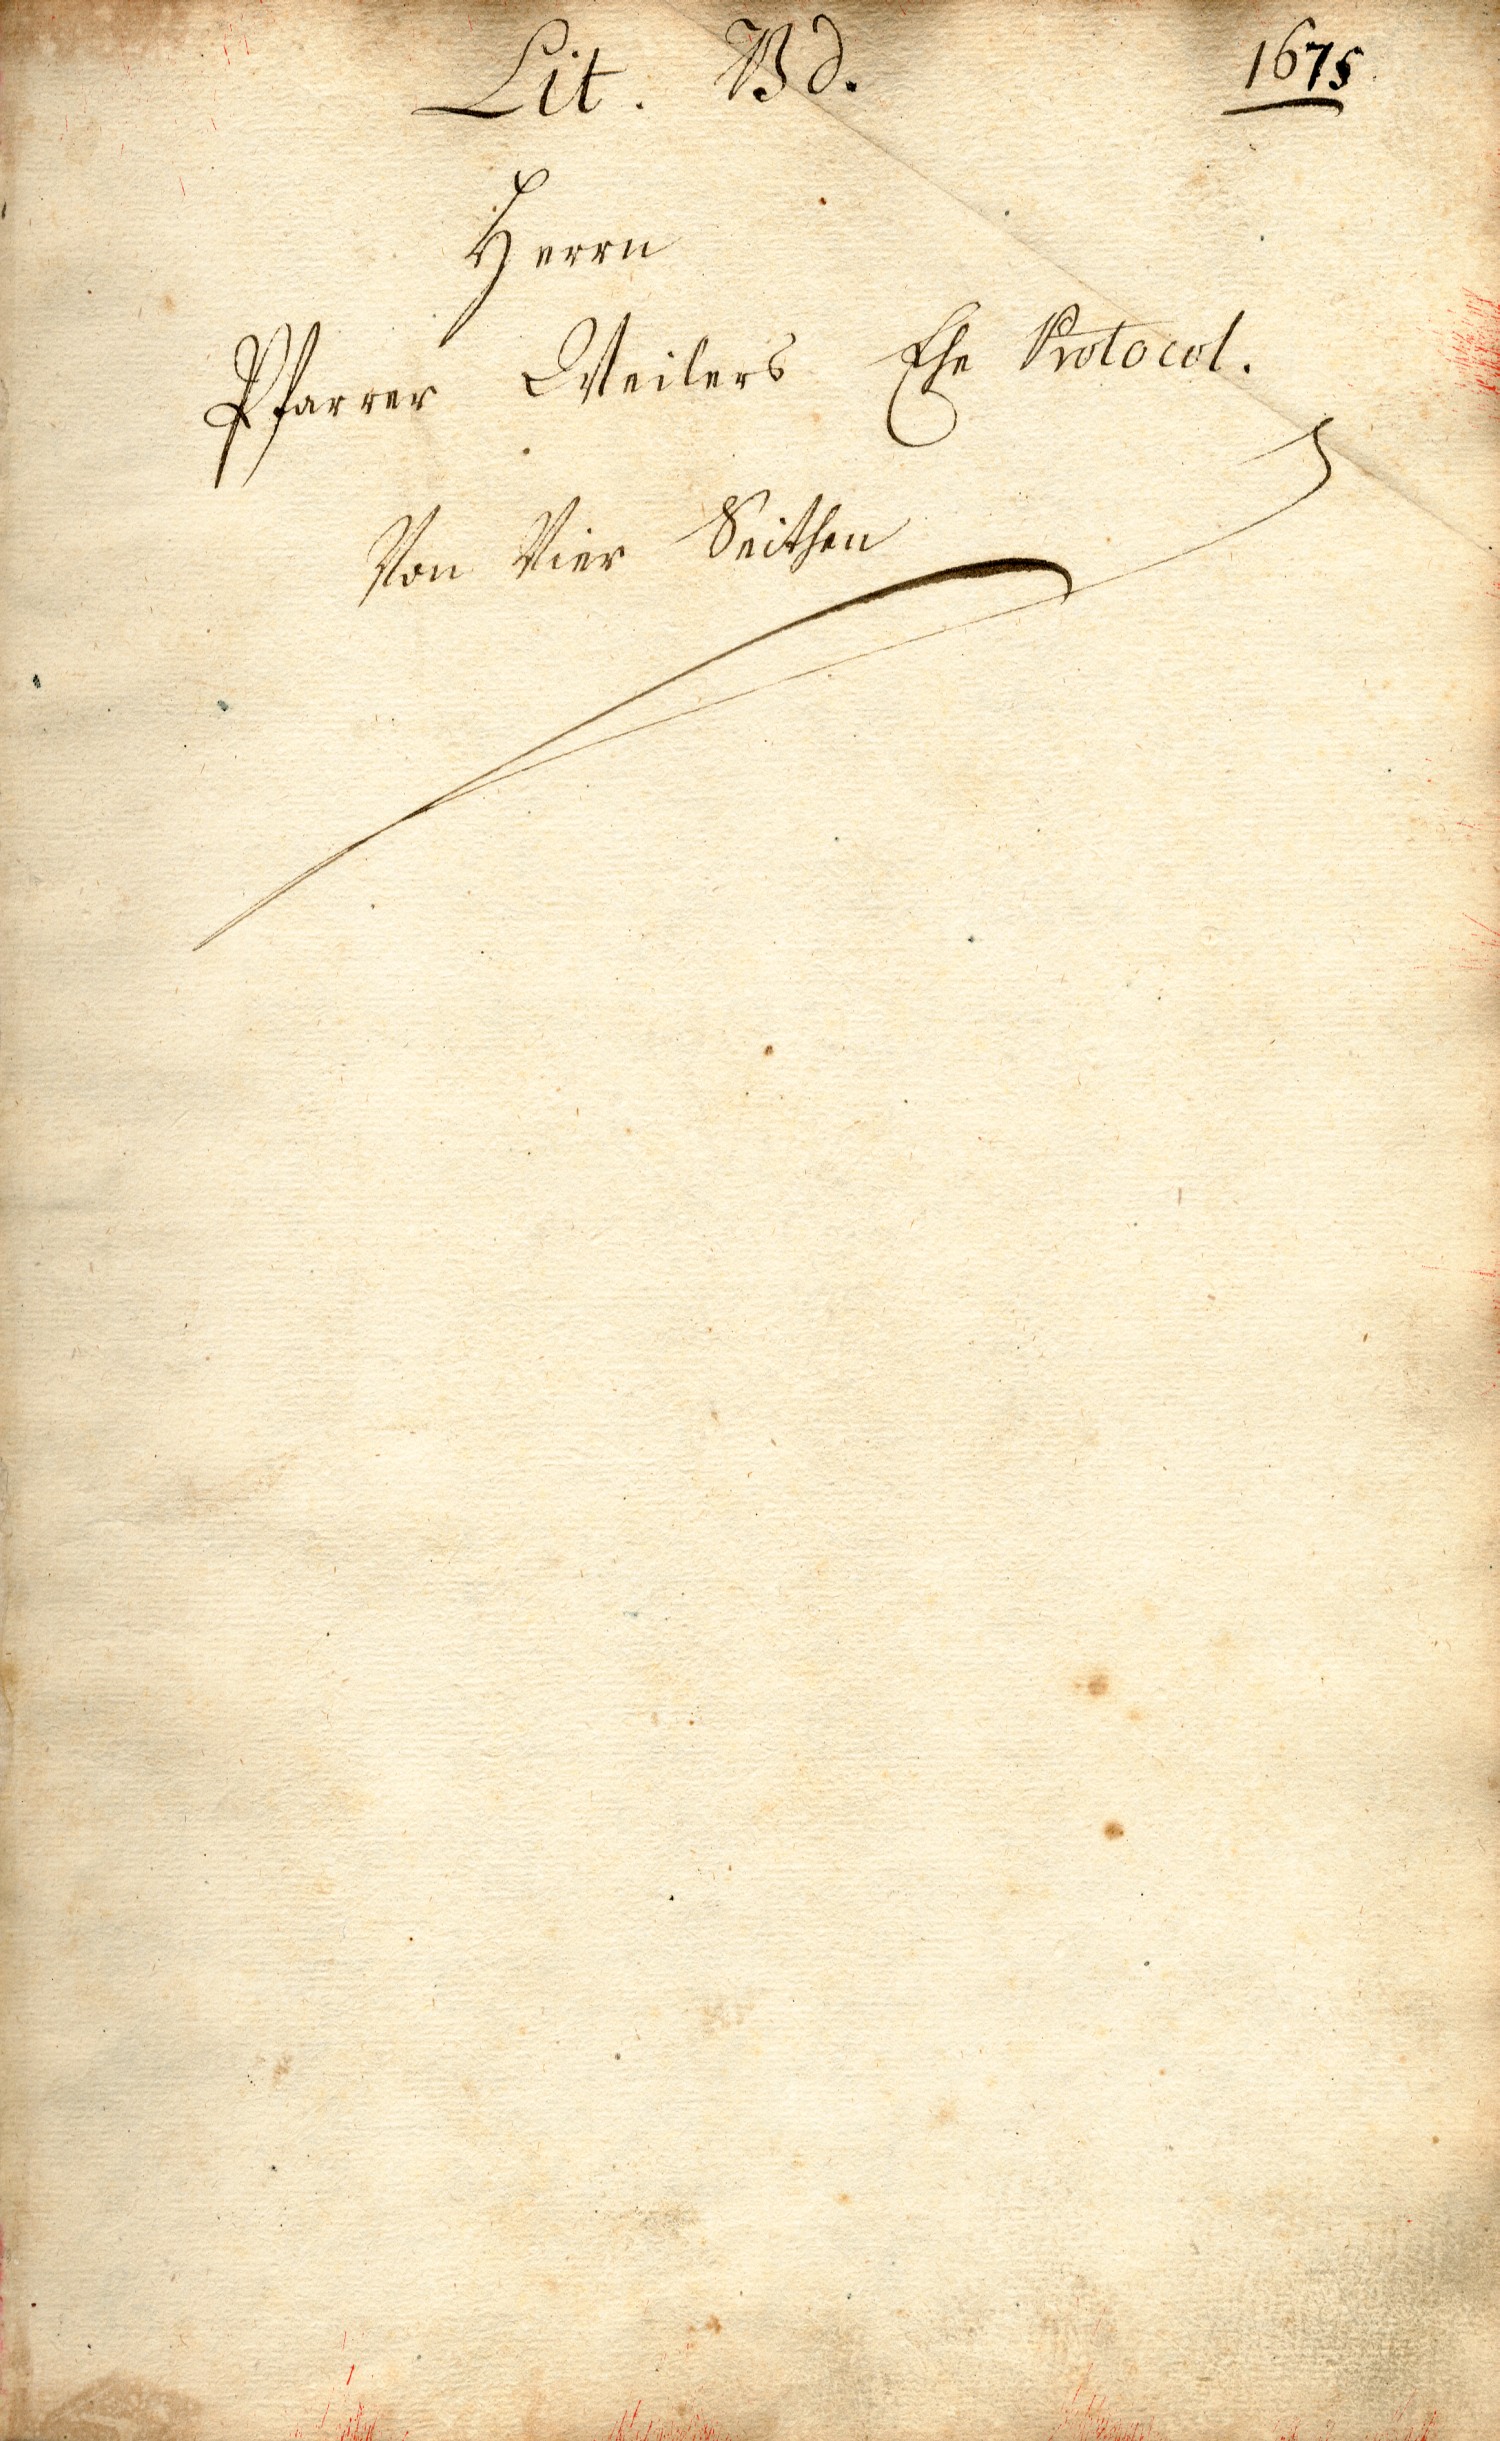 Lit. Bd. 1675
Herrn
Pfarrer Weilers Ehe Protocol.
Von Vier Seithen